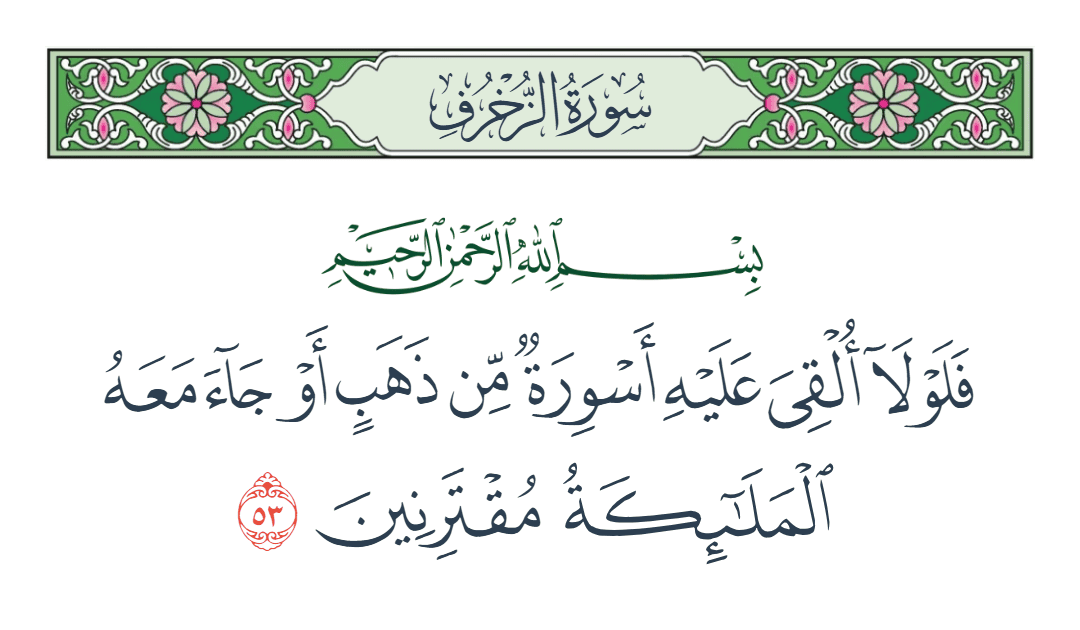 سُورَةُ الزُّخْرُفِ
بِسْمِ ٱللَّهِ ٱلرَّحْمَٰنِ ٱلرَّحِيمِ
فَلَوْلَآ أُلْقِىَ عَلَيْهِ أَسْوِرَةٌ مِّن ذَهَبٍ أَوْ جَآءَ مَعَهُ
ٱلْمَلَـٰٓئِكَةُ مُقْتَرِنِينَ ٥٣